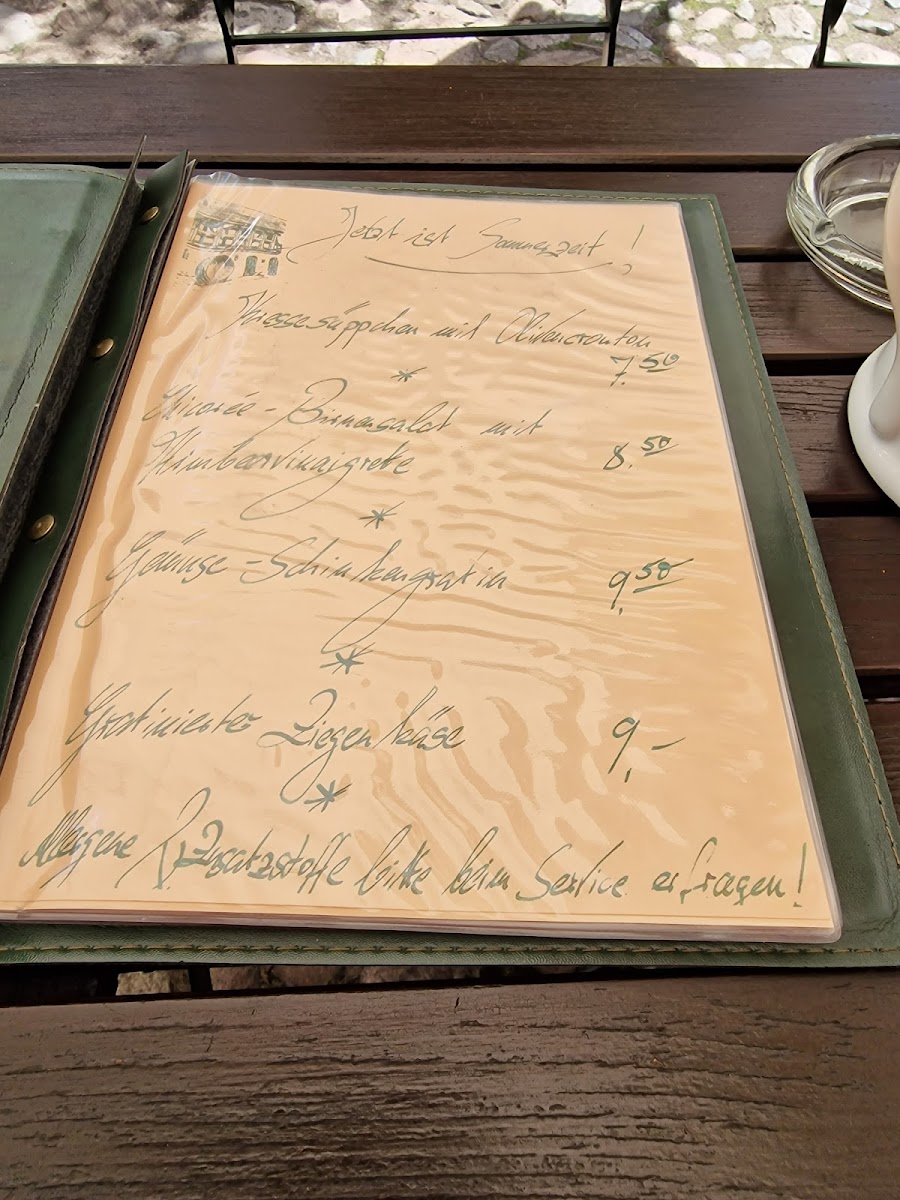 Jetzt ist Sommerzeit!
Kressesüppchen mit Olivencrouton
7.50
*
Chicorée-Birnensalat mit
Himbeervinaigrete 8.50
*
Gemüse-Schinkengratin 9.50
*
Gratinierter Ziegenkäse 9,-
*
Allergene & Zusatzstoffe bitte beim Service erfragen!